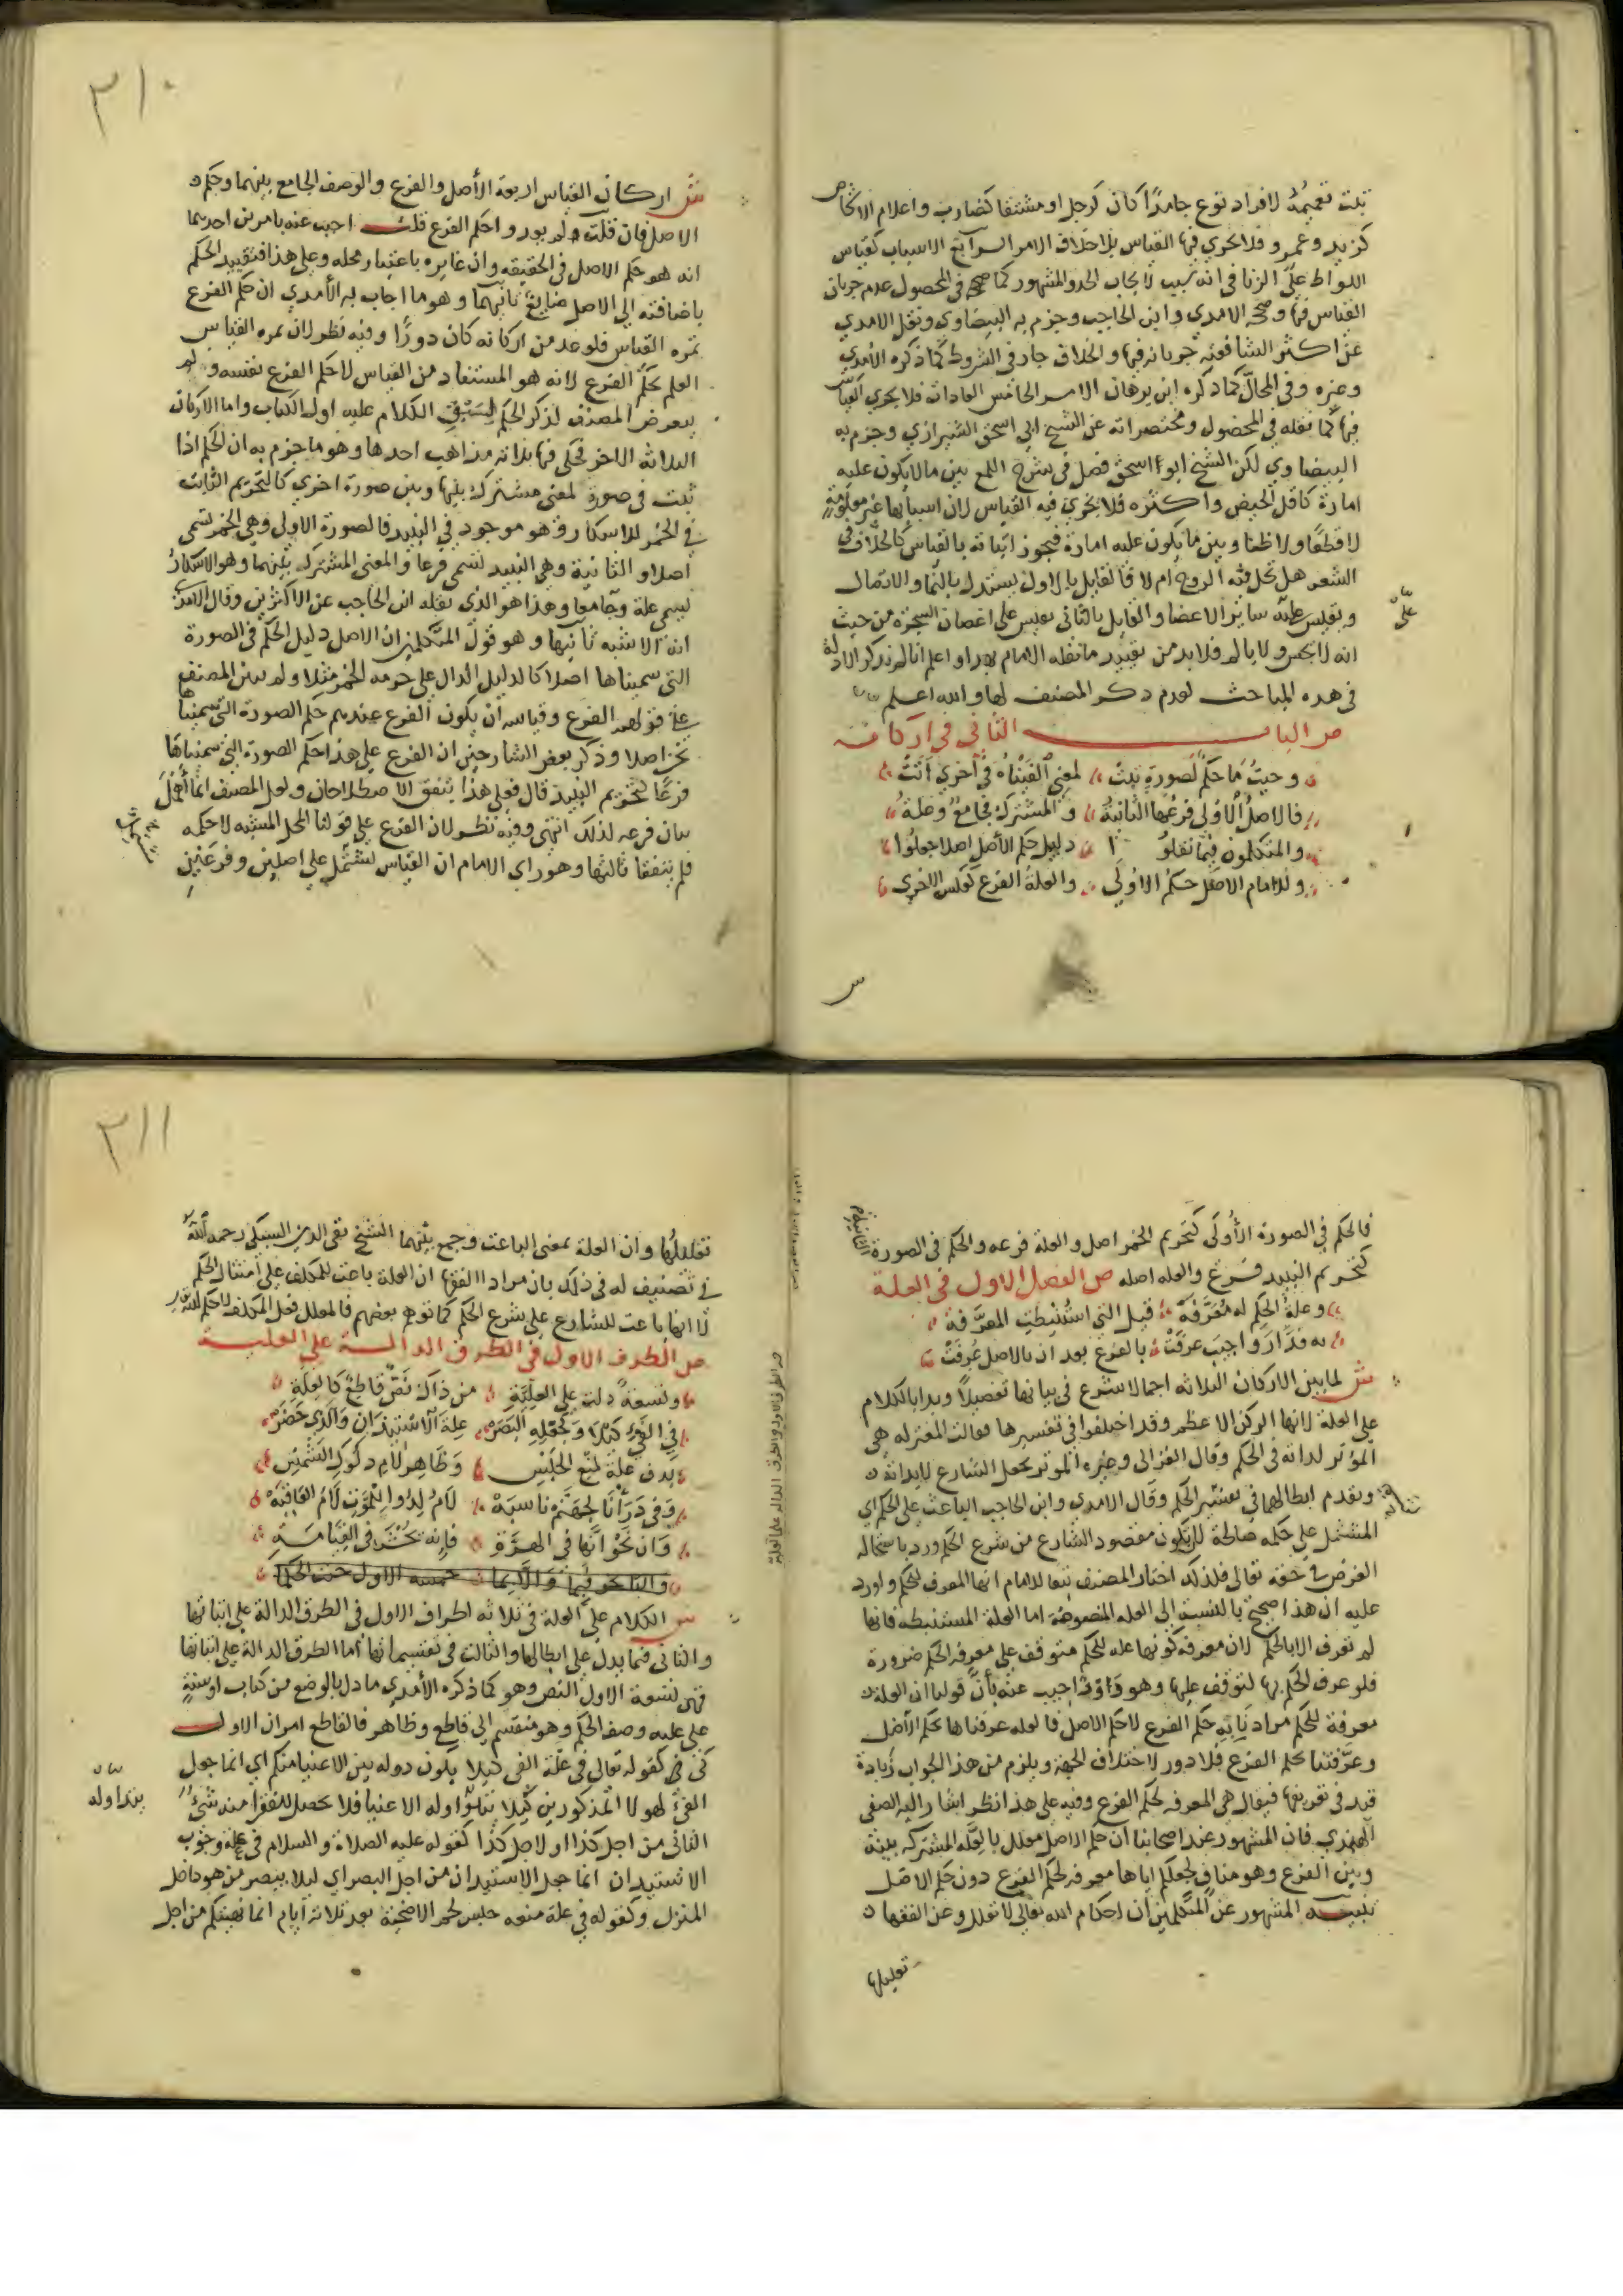 ثبت تعميمه لافراد نوع جامدا كان كرجل او مشتقا كضارب واعلام الاشخاص
كزيد وعمرو فلا يجري فيها القياس بلا خلاف الامر الرابع الاسباب كقياس
اللواط على الزنا في انه سبب لايجاب الحد والمشهور كما صححه في المحصول عدم جريان
القياس فيها وصححه الامدي وابن الحاجب وجزم به البيضاوي ونقل الامدي
عن اكثر الشافعية جريانه فيها والخلاف جار في الشروط كما ذكره الأمدي
وغيره وفي المحال كما ذكره ابن برهان الامر الخامس العادات فلا يجري القياس
فيها كما نقله في المحصول ومختصراته عن الشيخ ابي اسحق الشيرازي وجزم به
البيضاوي لكن الشيخ ابو اسحق فصل في شرح اللمع بين ما لا يكون عليه
امارة كاقل الحيض واكثره فلا يجري فيه القياس لان اسبابها غير معلومة
لا قطعا ولا ظنا وبين ما يكون عليه امارة فيجوز اثباته بالقياس كالخلاف في
الشعر هل تحل فيه الروح ام لا فالقايل بالاول يستدل بالنما والاتصال
ويقيس عليه سائر الاعضا والقايل بالثاني يقيس على اغصان الشجرة من حيث
انه لا يحس ولا يالم فلا بد من تقييد ما نقله الامام بهذا واعلم انا لم نذكر الادلة
في هذه المباحث لعدم ذكر المصنف لها والله اعلم
ص الباب الثاني في اركانه
وحيث ما حكم لصورة ثبت لمعنى الفيناه في اخرى اثبت
فالاصل الاولى فرعها الثانية والمشترك فجامع وعلة
والمتكلمون فيما نقلوا دليل حكم الأصل اصلا جعلوا
وللامام الاصل حكم الاولى والعلة الفرع كعكس الاخرى
٣١٠
ش اركان القياس اربعة الأصل والفرع والوصف الجامع بينهما وحكم
الاصل فان قلت ولم يعدوا حكم الفرع قلت اجيب عنه بامرين احدهما
انه هو حكم الاصل في الحقيقه وان غايره باعتبار محله وعلى هذا فتقييد الحكم
باضافته الى الاصل ضايع ثانيهما وهو ما اجاب به الأمدي ان حكم الفرع
ثمرة القياس فلو عد من اركانه كان دورا وفيه نظر لان ثمره القياس
العلم بحكم الفرع لانه هو المستفاد من القياس لا حكم الفرع نفسه ولم
يتعرض المصنف لذكر الحكم لسبق الكلام عليه اول الكتاب واما الاركان
الثلاثة الاخر فحكى فيها ثلاثة مذاهب احدها وهو ما جزم به ان الحكم اذا
ثبت في صورة لمعنى مشترك بينها وبين صورة اخرى كالتحريم الثابت
في الخمر للاسكار وهو موجود في النبيذ فالصورة الاولى وهي الخمر تسمى
اصلا والثانية وهي النبيذ تسمى فرعا والمعنى المشترك بينهما وهو الاسكار
يسمى علة وجامعا وهذا هو الذي نقله ابن الحاجب عن الاكثرين وقال الامدي
انه الاشبه ثانيها وهو قول المتكلمين ان الاصل دليل الحكم في الصورة
التي سميناها اصلا كالدليل الدال على حرمه الخمر مثلا ولم يبين المصنف
على قولهم الفرع وقياسه ان يكون الفرع عندهم حكم الصورة التي سميناها
نحن اصلا وذكر بعض الشارحين ان الفرع على هذا حكم الصورة التي سميناها
فرعا كتحريم النبيذ قال فعلى هذا يتفق الاصطلاحان ولعل المصنف انما اهمل
بيان فرعه لذلك انتهى وفيه نظر لان الفرع على قولنا المحل المشبه لا حكمه
فلم يتفقا ثالثها وهو راي الامام ان القياس يشتمل على اصلين وفرعين
فالحكم في الصورة الأولى كتحريم الخمر اصل والعلة فرعه والحكم في الصورة الثانية
كتحريم النبيذ فرع والعله اصله ص الفصل الاول في العلة
وعلة الحكم له معرفة قيل التي استنبطت المعرفة
به فدار واجيب عرفت بالفرع بعد ان بالاصل عرفت
ش لما بين الاركان الثلاثه اجمالا شرع في بيانها تفصيلا وبدا بالكلام
على العلة لانها الركن الاعظم وقد اختلفوا في تفسيرها فقالت المعتزله هي
المؤثر لذاته في الحكم وقال الغزالي وغيره المؤثر بجعل الشارع لا بذاته
وتقدم ابطالهما في تفسير الحكم وقال الامدي وابن الحاجب الباعث على الحكم اي
المشتمل على حكمه صالحة لان تكون مقصود الشارع من شرع الحكم ورد باستحالة
الغرض في حقه تعالى فلذلك اختار المصنف تبعا للامام انها المعرف للحكم واورد
عليه ان هذا صحيح بالنسبة الى العله المنصوصة اما العلة المستنبطه فانها
لم تعرف الا بالحكم لان معرفه كونها عله للحكم متوقف على معرفه الحكم ضرورة
فلو عرف الحكم بها لتوقف عليها وهو دور واجيب عنه بأن قولنا ان العلة
معرفة للحكم مرادنا به حكم الفرع لا حكم الاصل فالعله عرفناها بحكم الأصل
وعرفتنا حكم الفرع فلا دور لاختلاف الجهة ويلزم من هذا الجواب زيادة
قيد في تعريفها فيقال هي المعرفه لحكم الفرع وفيه على هذا نظر اشار اليه الصفي
الهندي فان المشهور عند اصحابنا ان حكم الاصل معلل بالعلة المشتركه بينه
وبين الفرع وهو مناف لجعلكم اياها معرفه لحكم الفرع دون حكم الاصل
تنبيه المشهور عن المتكلمين ان احكام الله تعالى لا تعلل وعن الفقها
تعليلها
٣١١
تعليلها وان العلة بمعنى الباعث وجمع بينهما الشيخ تقي الدين السبكي رحمه الله
في تصنيف له في ذلك بان مراد الفقها ان العلة باعث للمكلف على امتثال الحكم
لا انها باعث للشارع على شرع الحكم كما توهم بعضهم فالمعلل فعل المكلف لا حكم الله
ص الطرف الاول في الطرق الدالة على العلية
وتسعة دلت على العلية من ذاك نص قاطع كالعلة
في الفيء كيلا وكجعله البصر علة الاستيذان والذي حضر
بدف علة لمنع الحبس وظاهر لام دلوك الشمس
وفي ذرأنا لجهنم ناسبة لام لدوا للموت لام العاقبة
وان نحو انها في الهرة فانه يحشر في القيامة
ش الكلام على العلة في ثلاثه اطراف الاول في الطرق الدالة على اثباتها
والثاني فيما يدل على ابطالها والثالث في تقسيماتها اما الطرق الدالة على اثباتها
فهي تسعة الاول النص وهو كما ذكره الأمدي ما دل بالوضع من كتاب او سنة
على علية وصف الحكم وهو منقسم الى قاطع وظاهر فالقاطع امران الاول
كي كقوله تعالى في علة الفي كيلا يكون دوله بين الاغنيا منكم اي انما جعل
الفيء لهولا المذكورين كيلا يتداوله الاغنيا فلا يحصل للفقرا منه شيء
يتداوله
الثاني من اجل كذا او لاجل كذا كقوله عليه الصلاة والسلام في علة وجوب
الاستيذان انما جعل الاستيذان من اجل البصر اي ليلا يبصر من هو داخل
المنزل وكقوله في علة منعه حبس لحم الاضحية بعد ثلاثة ايام انما نهيتكم من اجل